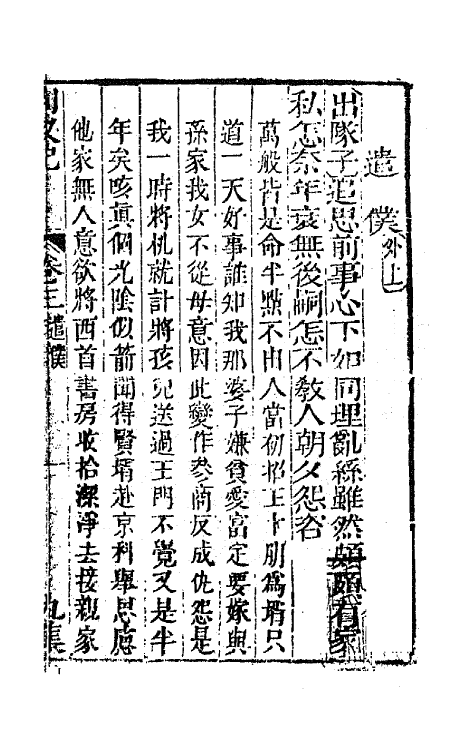 遣僕
外上
出隊子追思前事心下如同理亂絲雖然頗有家
私怎奈年衰無後嗣怎不教人朝夕怨咨
萬般皆是命半點不由人當初招王十朋為壻只
道一天好事誰知我那婆子嫌貧愛富定要嫁與
孫家我女不從母意因此變作參商反成仇怨是
我一時將机就計將孩兒送過王門不覺又是半
年矣咳眞個光陰似箭聞得賢壻赴京科舉思慮
他家無人意欲將西首書房收拾潔淨去接親家
卷上遣僕